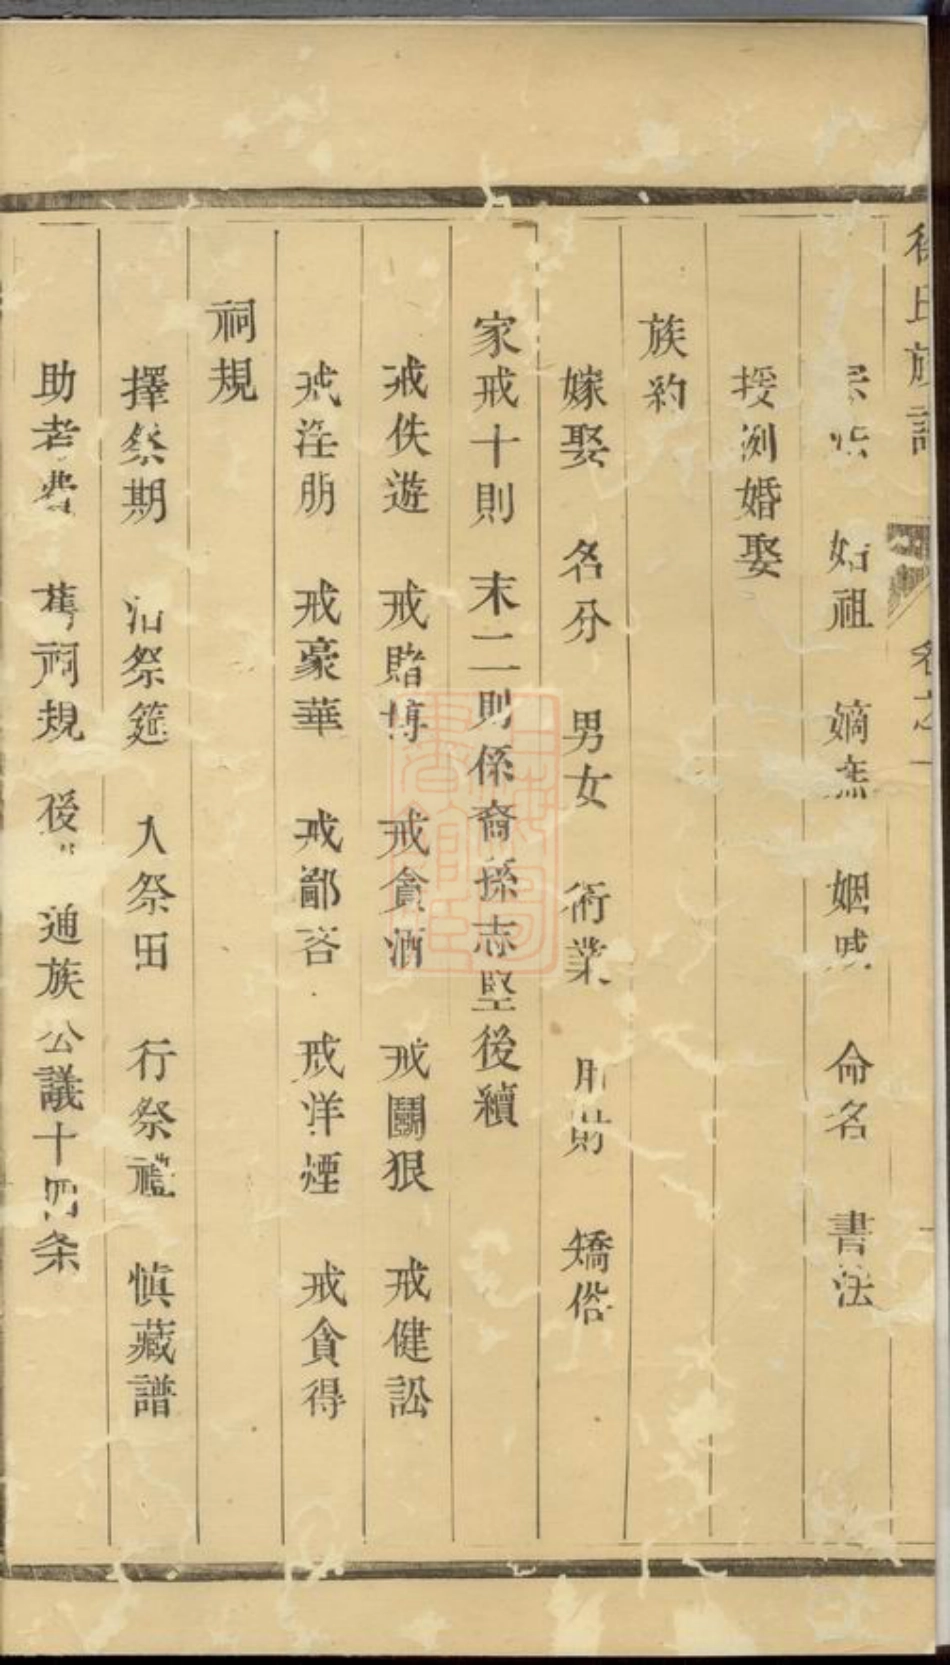 徐氏族譜 卷之一
宗法 始祖 嫡庶 姻戚 命名 書法
授測婚娶
族約
嫁娶 名分 男女 術業 用財 矯俗
家戒十則 末二則係裔孫志堅後續
戒佚遊 戒賭博 戒貪酒 戒鬪狠 戒健訟
戒淫朋 戒豪華 戒鄙吝 戒洋煙 戒貪得
祠規
擇祭期 治祭筵 入祭田 行祭禮 慎藏譜
助考費 舊祠規 後 通族公議十四条